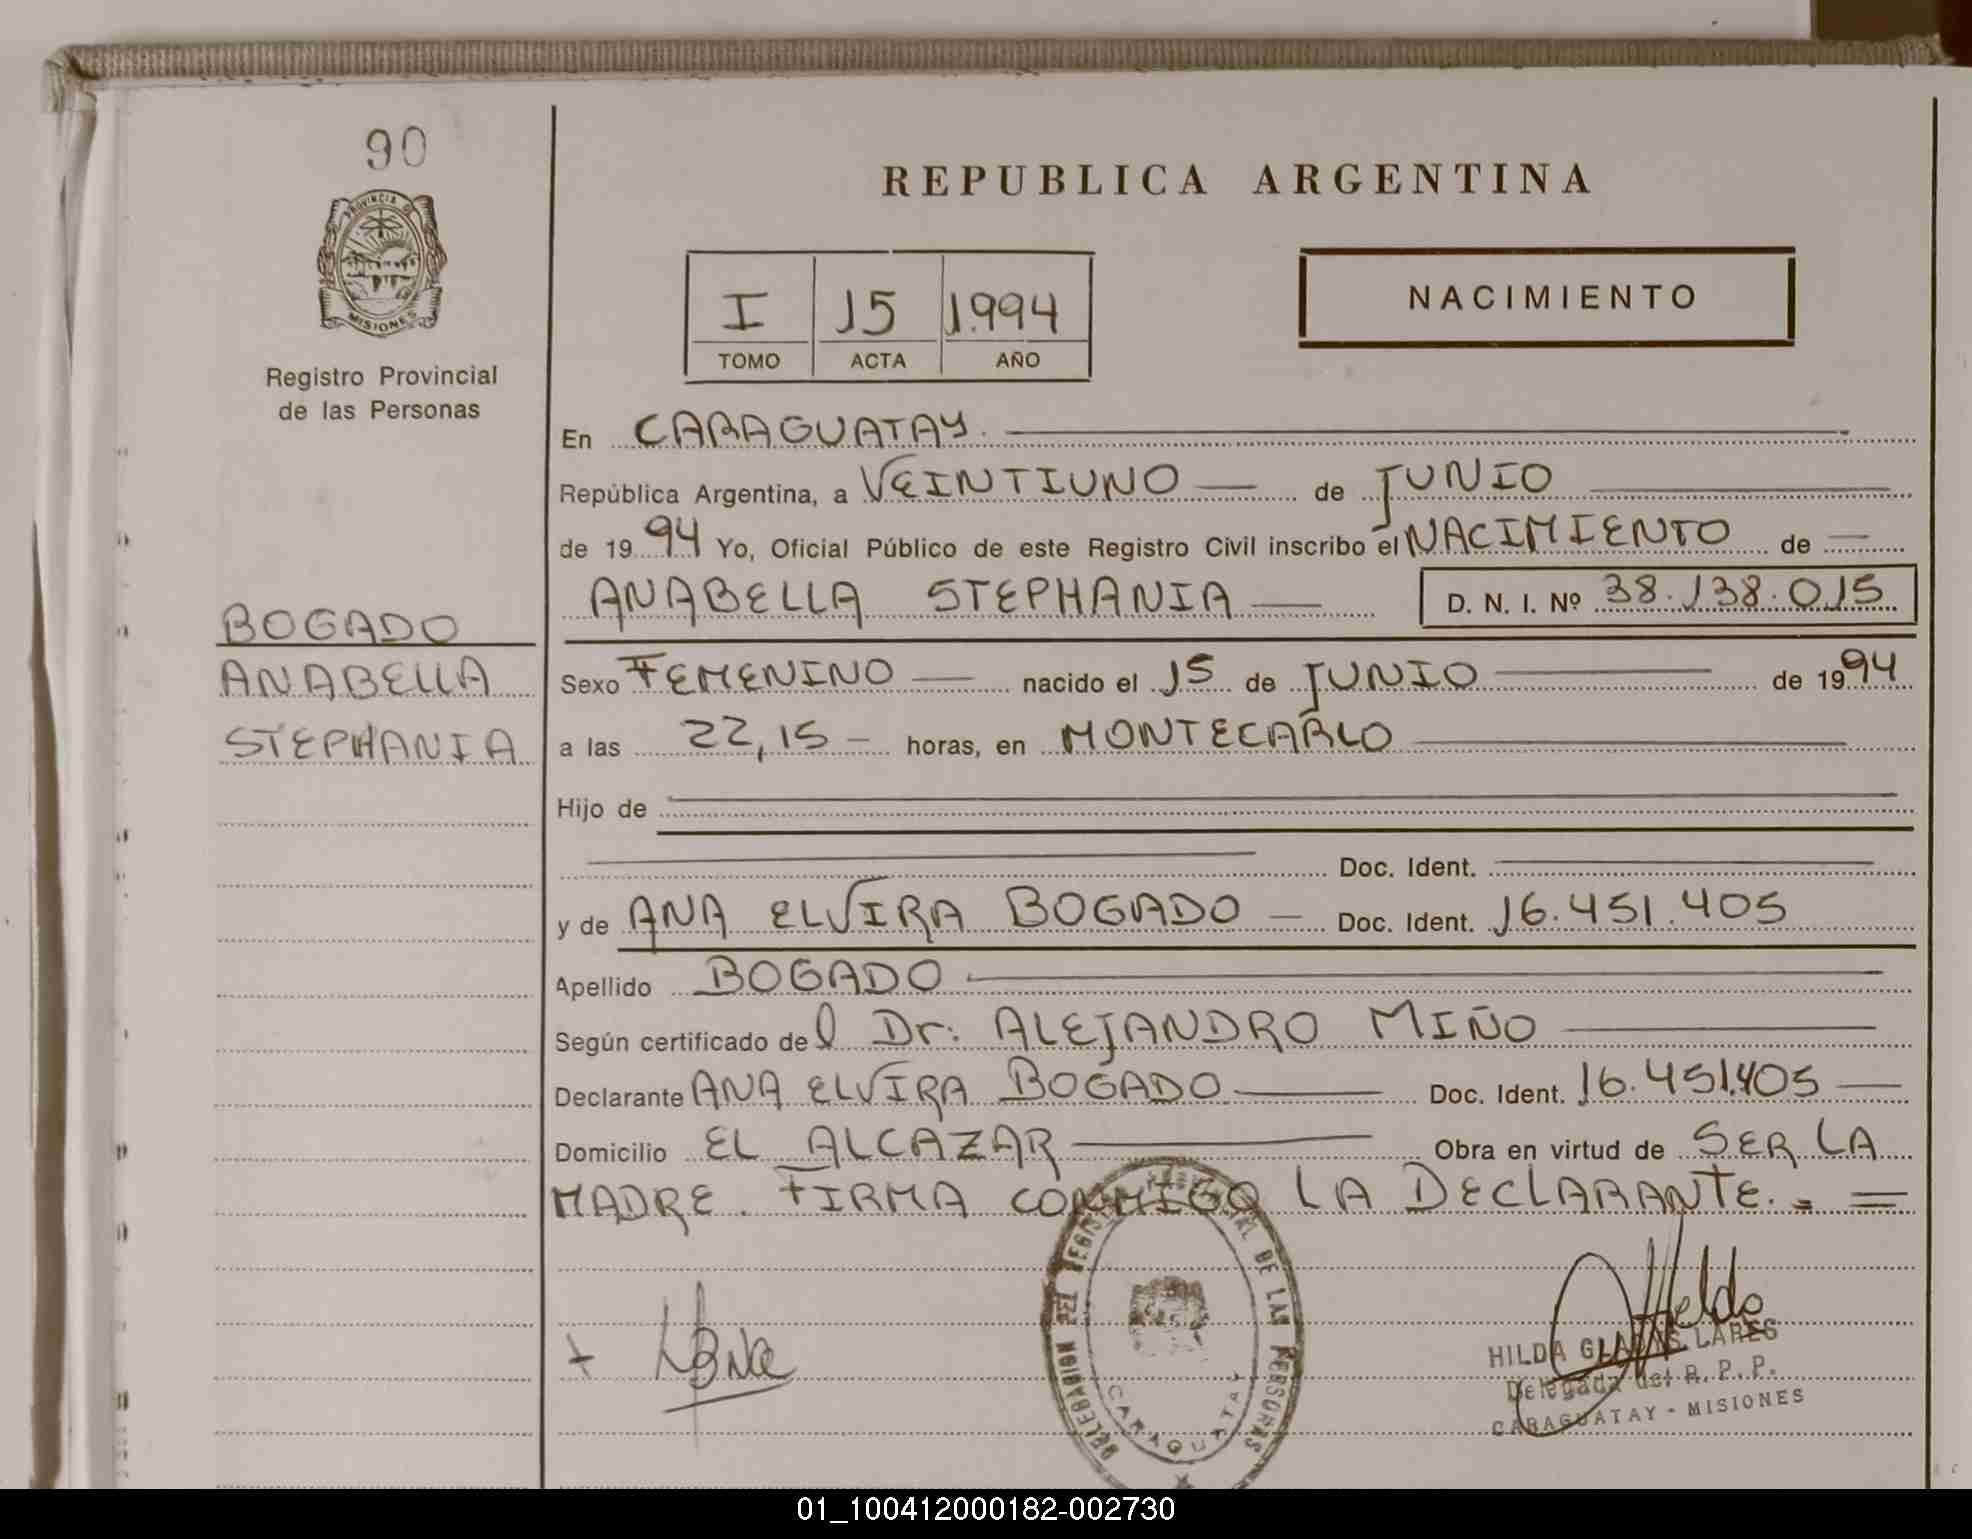 90
PROVINCIA DE
MISIONES
Registro Provincial
de las Personas
BOGADO
ANABELLA
STEPHANIA
REPUBLICA ARGENTINA
I 15 1.994
TOMO ACTA AÑO
NACIMIENTO
En CARAGUATAY.
República Argentina, a VEINTIUNO de JUNIO
de 19 94 Yo, Oficial Público de este Registro Civil inscribo el NACIMIENTO de
ANABELLA STEPHANIA D. N. I. Nº 38.138.015
Sexo FEMENINO nacido el 15 de JUNIO de 19 94
a las 22,15 horas, en MONTECARLO
Hijo de
Doc. Ident.
y de ANA ELVIRA BOGADO Doc. Ident. 16.451.405
Apellido BOGADO
Según certificado del Dr: ALEJANDRO MIÑO
Declarante ANA ELVIRA BOGADO Doc. Ident. 16.451.405
Domicilio EL ALCAZAR Obra en virtud de SER LA
MADRE. FIRMA CONMIGO LA DECLARANTE.
DELEGACION DEL REGISTRO PROVINCIAL DE LAS PERSONAS
CARAGUATAY
HILDA GLADYS LARES
Delegada del R.P.P.
CARAGUATAY - MISIONES
01_100412000182-002730